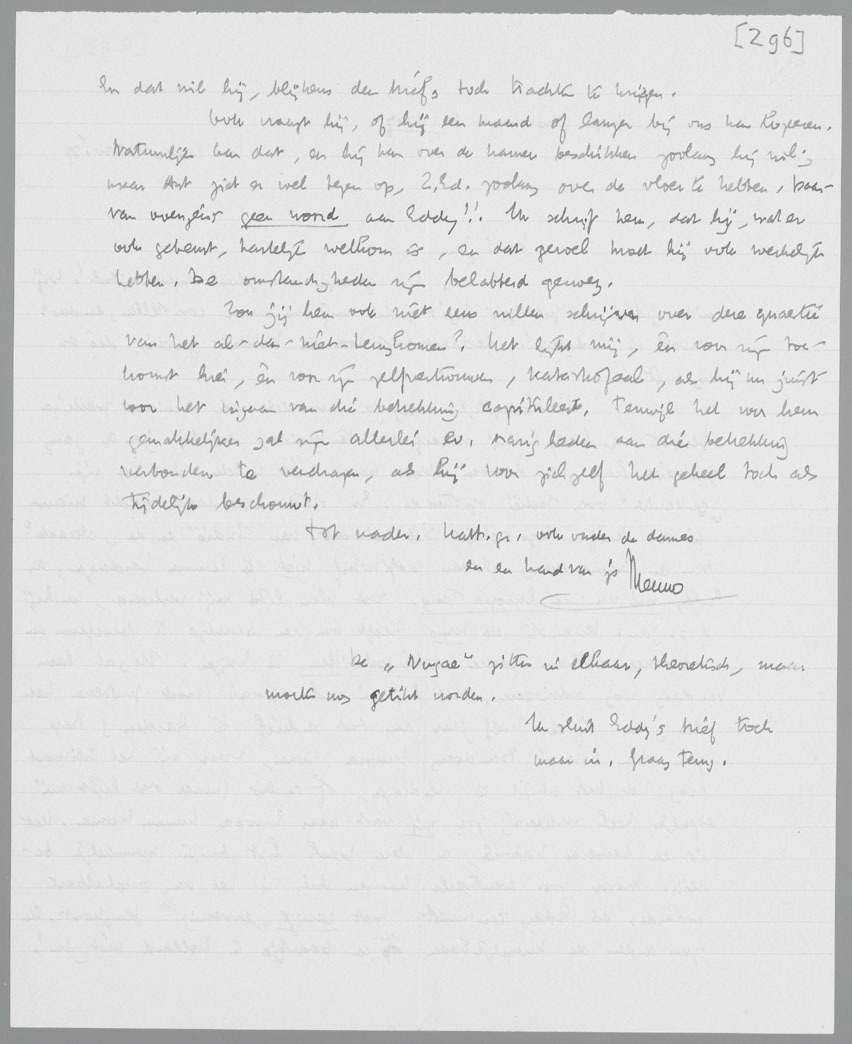 [296]
En dat wil hij, blijkens den brief, toch trachten te krijgen.
Ook vraagt hij, of hij een maand of langer bij ons kan logeeren.
Natuurlijk kan dat, en hij kan over de kamer beschikken zoolang hij wil;
maar Ant ziet er wel tegen op, zoolang over de vloer te hebben, daar-
van overigens geen woord aan Eddy!! Ik schrijf hem, dat hij, wat er
ook gebeurt, hartelijk welkom is, en dat gevoel moet hij ook werkelijk
hebben. De omstandigheden zijn belabberd genoeg.
Zou jij hem ook niet eens willen schrijven over deze quaestie
van het al-dan-niet-terugkomen? Het lijkt mij, èn voor zijn toe-
komst hier, èn voor zijn zelfvertrouwen, katastrofaal, als hij nu juist
voor het krijgen van dié betrekking capituleert. Terwijl het voor hem
gemakkelijker zal zijn allerlei ev. narigheden aan dié betrekking
verbonden te verdragen, als hij voor zichzelf het geheel toch als
tijdelijk beschouwt.
Tot nader. Hart. gr. ook onder de dames
en en hand van je Menno
De „Nugae" zitten in elkaar, theoretisch, maar
moeten nog getikt worden.
Ik sluit Eddy's brief toch
maar in. Graag terug.